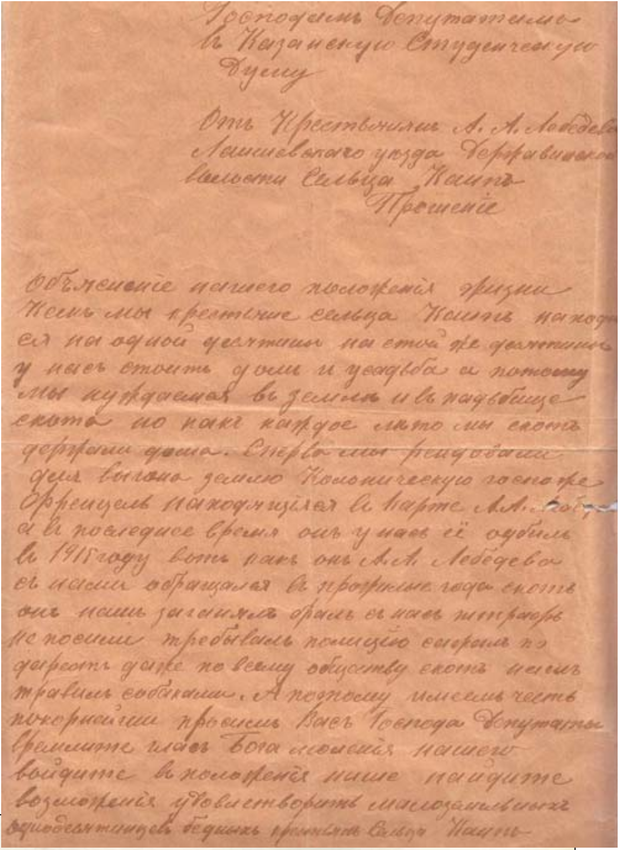 Господамъ Депутатамъ
въ Казанскую Студенческую
Думу
Отъ Крестьянъ А. А. Лебедева
Лаишевскаго уезда Державинской
волости Сельца Каипъ
Прошеніе
Объясненіе нашего положенія жизни
Чемъ мы крестьяне сельца Каипъ находим
ся на одной десятине на етой же десятине
у насъ стоитъ домъ и усадьба а потому
мы нуждаемся въ земле и въ падьбище
скота но какъ каждое лъто мы скотъ
держали дома. Сперва мы рендовали
для выгона землю Колоническую госпоже
находящіяся въ Карте А.А. Лебе
а въ последнее время онъ у насъ её отбилъ
въ 1915 году вотъ какъ онъ А.А. Лебедева
съ нами обращался въ прожилые года скотъ
онъ нашъ загонялъ бралъ съ насъ штрафъ
не посили требывалъ полицію
даже по всему обществу скотъ нашъ
травилъ собаками. А потому имеемъ честь
покорнейши просимъ Васъ Господа Депутаты
гласъ Бога моленія нашего
войдите въ положенія наше найдите
возможенія удовлетворить малоземельныхъ
однодесятинцевъ бедныхъ крестьянъ Сельца Каипъ